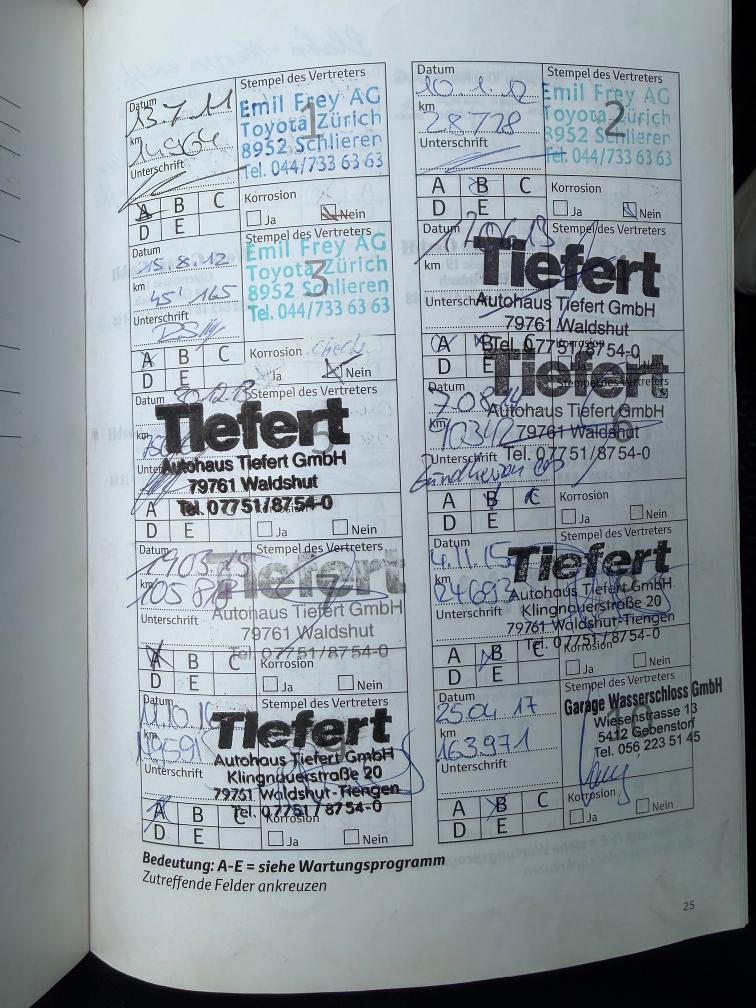 Datum
13.7.11
km
Unterschrift
Stempel des Vertreters
1
Emil Frey AG
Toyota Zürich
8952 Schlieren
Tel. 044/733 63 63
A B C
D E
Korrosion
Ja Nein
Datum
10.1.12
km
28'728
Unterschrift
Stempel des Vertreters
2
Emil Frey AG
Toyota Zürich
8952 Schlieren
Tel. 044/733 63 63
A B C
D E
Korrosion
Ja Nein
Datum
15.8.12
km
45'165
Unterschrift
Stempel des Vertreters
3
Emil Frey AG
Toyota Zürich
8952 Schlieren
Tel. 044/733 63 63
A B C
D E
Korrosion
Ja Nein
Datum
17.06.13
km
Unterschrift
Stempel des Vertreters
Tiefert
Autohaus Tiefert GmbH
79761 Waldshut
Tel. 07751/8754-0
A B
D E
Datum
30.12.13
km
Stempel des Vertreters
5
Tiefert
Autohaus Tiefert GmbH
79761 Waldshut
Tel. 07751/8754-0
A
D E
Ja Nein
Datum
km
Unterschrift
Stempel des Vertreters
6
Tiefert
Autohaus Tiefert GmbH
79761 Waldshut
Tel. 07751/8754-0
A B C
D E
Korrosion
Ja Nein
Datum
19.03.15
km
Unterschrift
Stempel des Vertreters
7
Tiefert
Autohaus Tiefert GmbH
79761 Waldshut
Tel. 07751/8754-0
A B C
D E
Korrosion
Ja Nein
Datum
4.11.15
km
Unterschrift
Stempel des Vertreters
Tiefert
Autohaus Tiefert GmbH
Klingnauerstraße 20
79761 Waldshut-Tiengen
Tel. 07751/8754-0
A B C
D E
Korrosion
Ja Nein
Datum
km
Unterschrift
Stempel des Vertreters
9
Tiefert
Autohaus Tiefert GmbH
Klingnauerstraße 20
79761 Waldshut-Tiengen
Tel. 07751/8754-0
A B C
D E
Korrosion
Ja Nein
Datum
25.04.17
km
163.971
Unterschrift
Stempel des Vertreters
Garage Wasserschloss GmbH
Wiesenstrasse 13
5412 Gebenstorf
Tel. 056 223 51 45
A B C
D E
Korrosion
Ja Nein
Bedeutung: A-E = siehe Wartungsprogramm
Zutreffende Felder ankreuzen
25